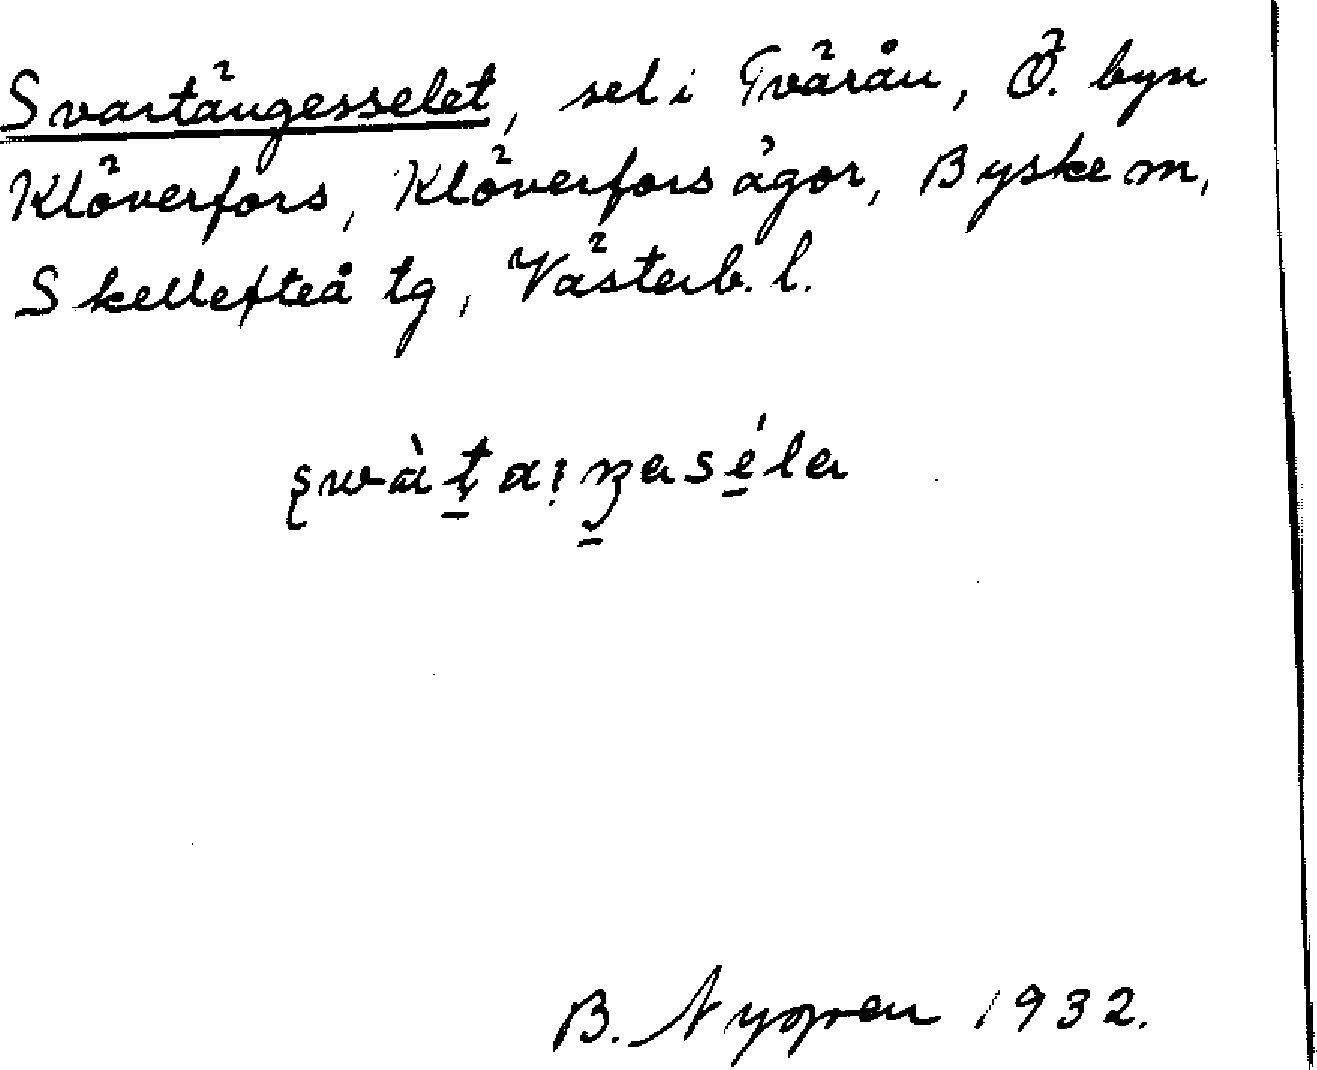 Svartängesselet, sel i Tvärån, Ö. byn
Klöverfors, Klöverfors ägor, Byske sn,
Skellefteå tg, Västerb. l.
B. Nygren 1932.